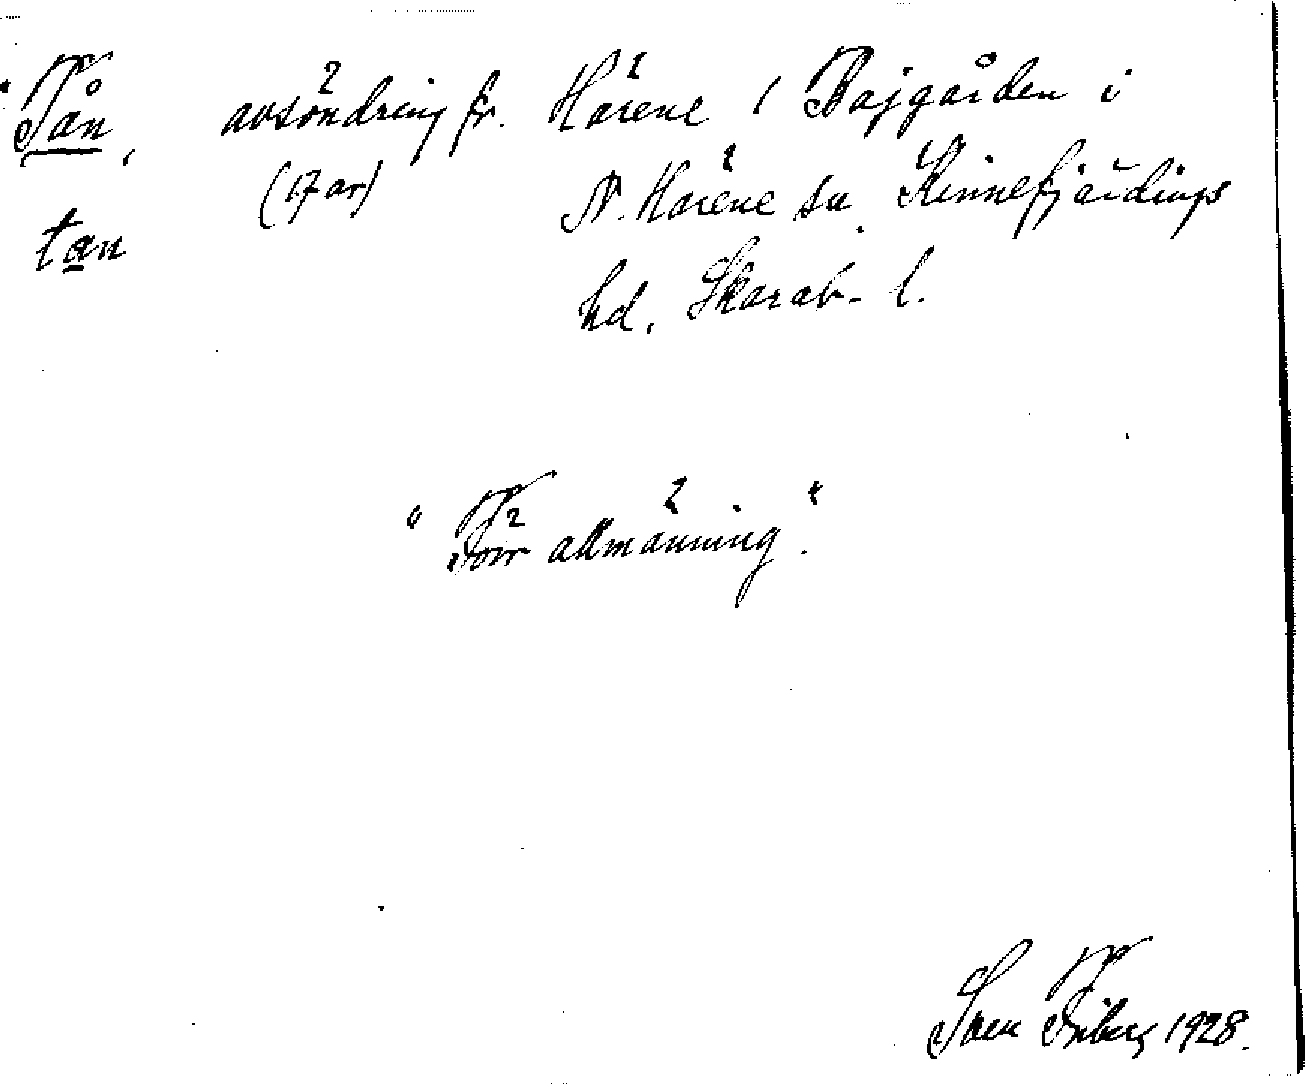 Tån, avsöndring fr. Härene 1 Bajgården i
(17 ar) N. Härene sn. Kinnefjärdings
tan
hd. Skarab. l.
"Förr allmänning".
Sven Friberg 1928.